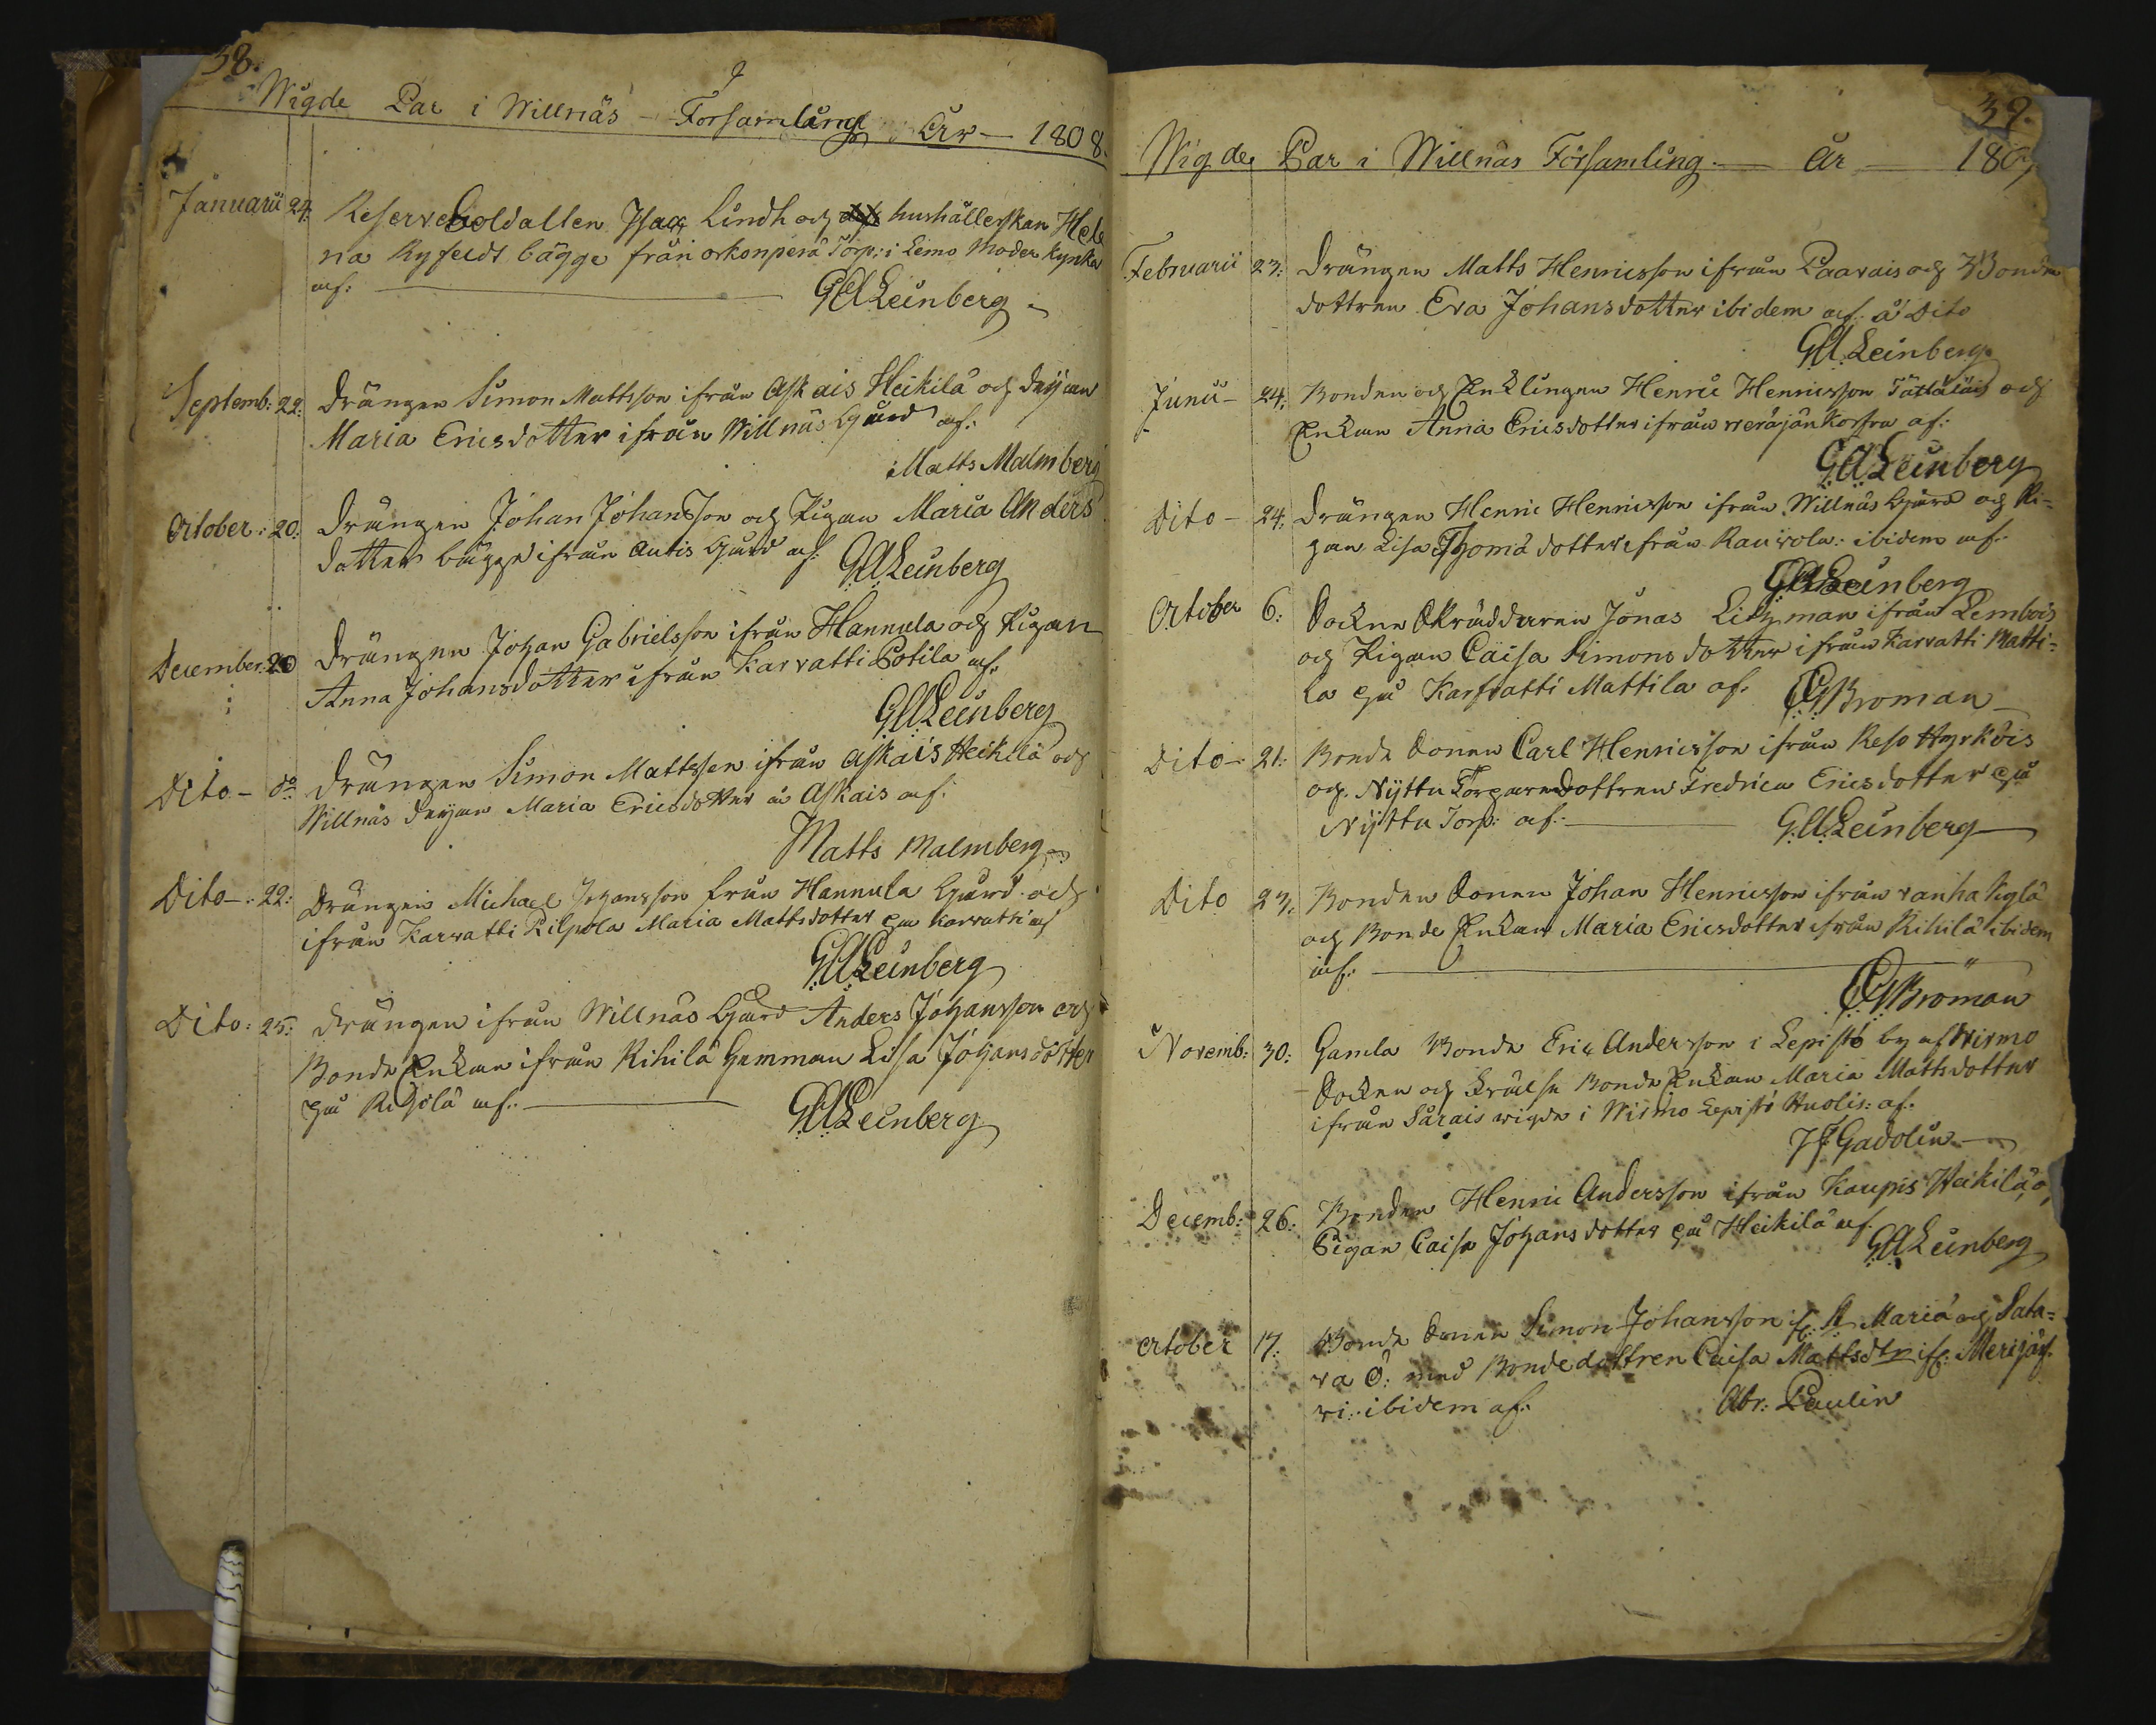 38.
Wigde Par i Willnäs Församling År 1808.
Januarii 24. Reserve Soldatten Isaac Lindh och hushållerskan Hele
na Ryfeldt bägge från orkonperä Torp: i Lemo Moder kyrka
af: GA Leinberg
Septemb: 22: Drängen Simon Mattsson ifrån Askais Heikilä och Deijan
Maria Ericsdotter ifrån Willnäs Gård af:
Matts Malmberg
October: 20: Drängen Johan Johansson och Pigan Maria Anders
dotter bägge ifrån Autis Gård af: GA Leinberg
December: 20 Drängen Johan Gabrielsson ifrån Hannula och Pigan
Anna Johansdotter ifrån Karvatti Potila af:
GA Leinberg
Dito - do Drängen Simon Mattsson ifrån Askais Heikilä och
Willnäs Deijan Maria Ericsdotter å Askais af:
Matts Malmberg
Dito -: 22: Drängen Michael Johansson från Hannula Gård och
ifrån Karvatti Pilpola Maria Mattsdotter på Karvatti af
GA Leinberg
Dito: 25: Drängen ifrån Willnäs Gård Anders Johansson och
Bonde Enkan ifrån Rihilä Lisa Johansdotter
på Rihilä af: GA Leinberg
39.
Wigde Par i Willnäs Församling År 1809
Februarii 23: Drängen Matts Henricsson ifrån Paavais och Bonde
dottren Eva Johansdotter ibidem af å Dito
GA Leinberg
Junii - 24: Bonden och Enklingen Henric Henricsson och
Enkan Anna Ericsdotter ifrån af:
GA Leinberg
Dito - 24: Drängen Henric Henricsson ifrån Willnäs Gård och Pi=
gan Lisa Thomædotter ifrån Rauvola: ibidem af:
GA Leinberg
October 6: Socken Skräddaren Jonas ifrån Lembois
och Pigan Caisa Simonsdotter ifrån Karvatti Matti=
la på Karfvatti Mattila af. Broman
Dito - 21: Bonde Sonen Carl Henricsson ifrån Reso Hyrköis
och Nytta Torparedottren Fredrica Ericsdotter på
Nytta Torp: af: GA Leinberg
Dito 23: Bonden Sonen Johan Henricsson ifrån vanha
och Bonde Enkan Maria Ericsdotter ifrån Rihilä ibidem
af: Broman
Novemb: 30: Gamla Bonde Eric Andersson i Lepistö by af Wirmo
Socken och Frälse Bonde Enkan Maria Mattsdotter
ifrån Särais vigde i Wirmo Lepistö af:
Gadolin
Decemb: 26: Bonden Henric Andersson ifrån Kaupis Heikilä, o,
Pigan Caisa Johansdotter på Heikilä af:
GA Leinberg
October 17: Bonde Sonen Simon Johansson if: St Mariæ och Sata=
va Ö: med Bondedottren Caisa Mattsdtr if: Merijär
vi: ibidem af: Abr: Paulin